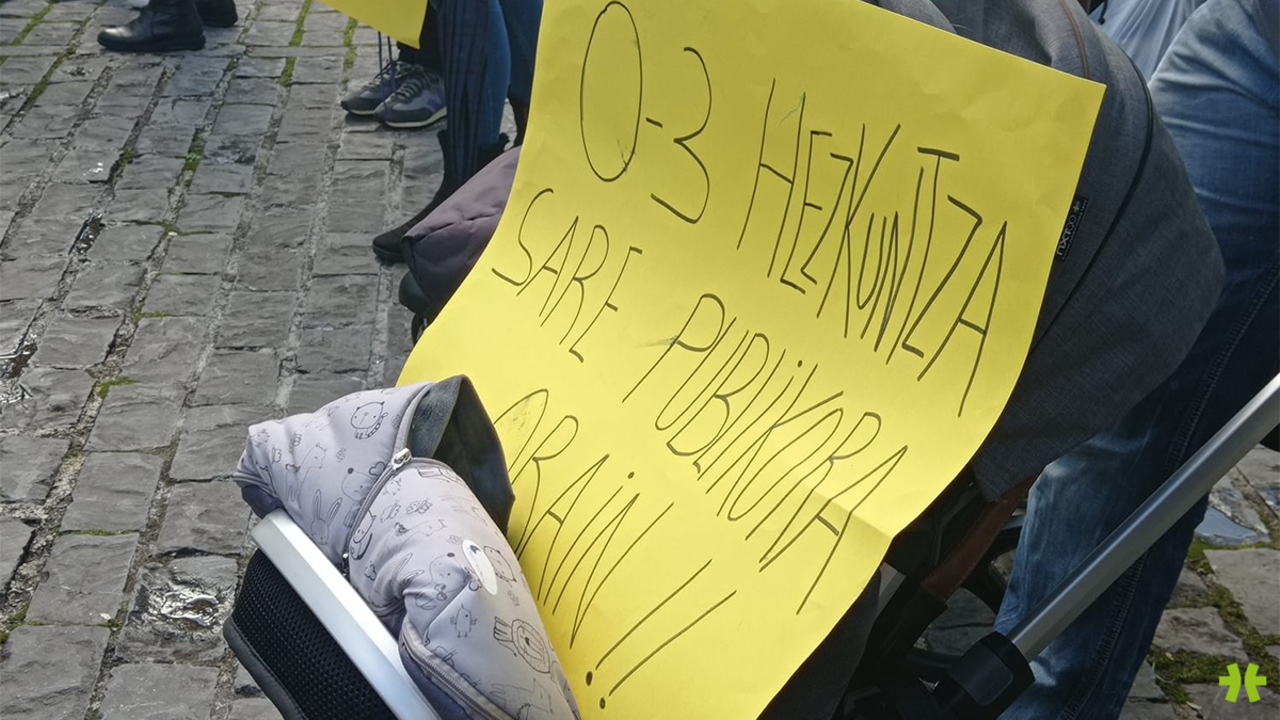 0-3 HEZKUNTZA
SARE PUBLIKORA
ORAIN!!